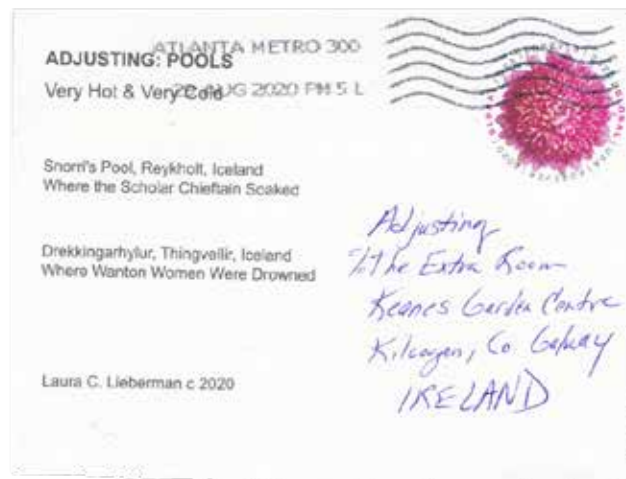 ATLANTA METRO 300
ADJUSTING: POOLS
Very Hot & Very Cold
AUG 2020 PM 5 L
Snorri's Pool, Reykholt, Iceland
Where the Scholar Chieftain Soaked
Drekkingarhylur, Thingvellir, Iceland
Where Wanton Women Were Drowned
Laura C. Lieberman c 2020
Adjusting
c/o The Extra Room
Keanes Garden Centre
Kilcogen, Co Galway
IRELAND
GLOBAL